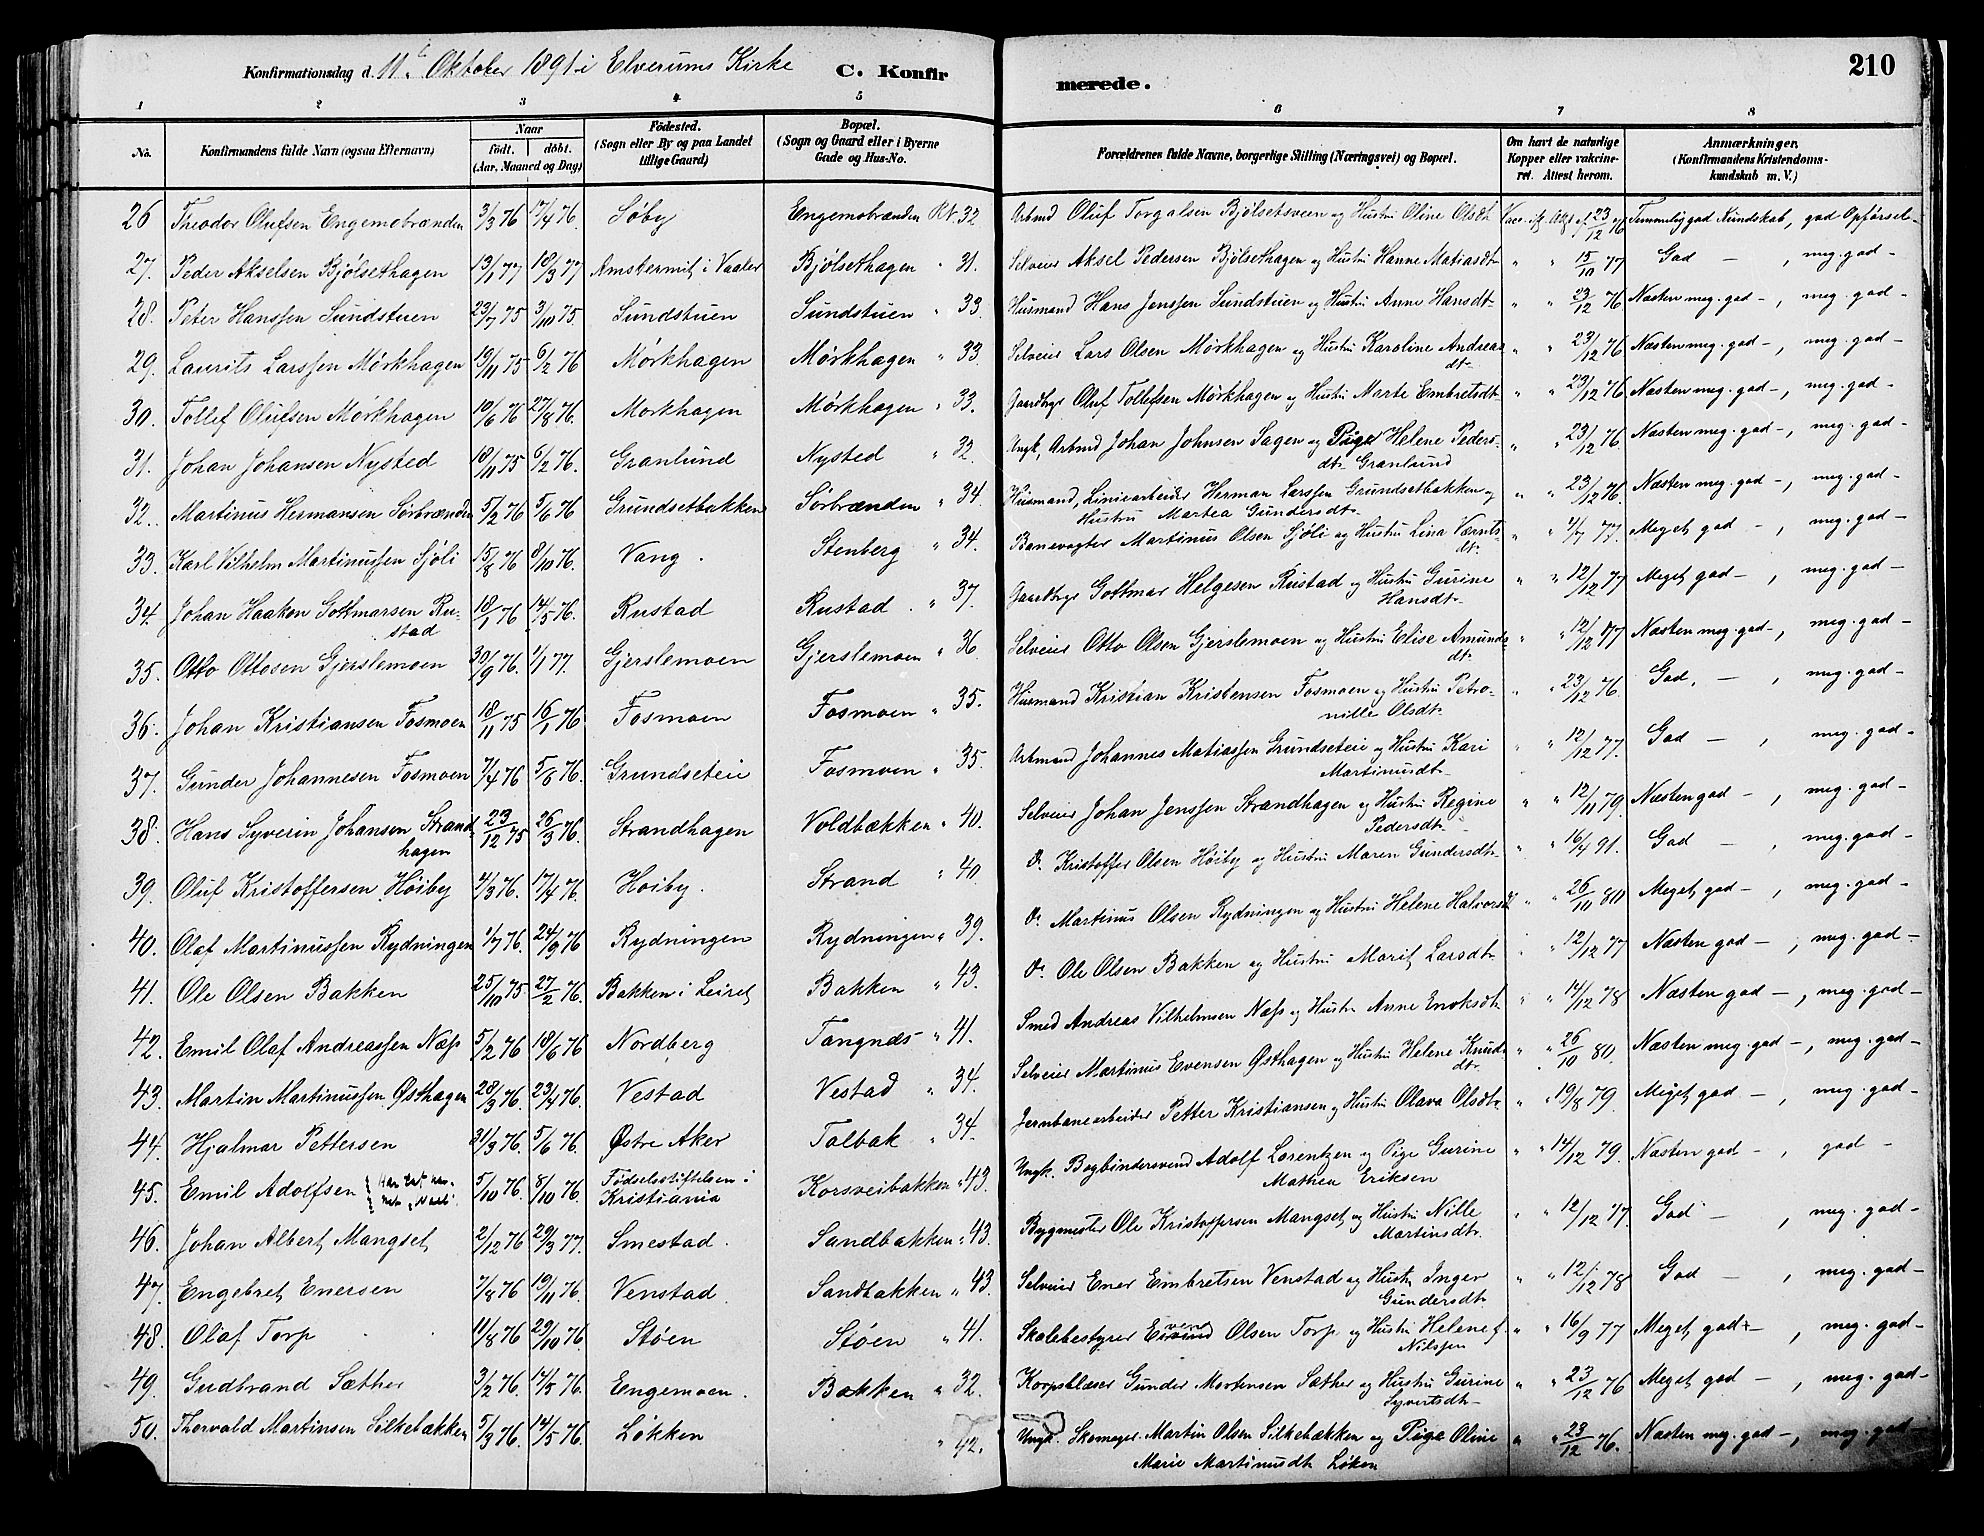 Konfirmationsdag d. 11te Oktober 1891 i Elverums Kirke C. Konfir merede. 210
1 2 3 4 5 6 7 8
No. Konfirmandens fulde Navn (ogsaa Efternavn) Naar født. døbt. (Aar, Maaned og Dag) Fødested. (Sogn eller By og paa Landet tillige Gaard) Bopæl. (Sogn og Gaard eller i Byerne Gade og Hus-No. Forældrenes fulde Navne, borgerlige Stilling (Næringsvei) og Bopæl. Om havt de naturlige Kopper eller vakcineret. Attest herom. Anmærkninger. (Konfirmandens Kristendomskundskab m. V.)
26 Theodor Olufsen Engemobrænden 3/3 76 17/4 76. Søby Engemobrænden Rk 32. Arbmd Oluf Torgalsen Bjølsetsveen og Hustru Oline Olsdt 23/12 76 Temmelig god Kundskab, god Opførsel -
27. Peder Akselsen Bjølsethagen 13/1 77 18/3 77 i Vaaler Bjølsethagen " 31. Selveier Aksel Pedersen Bjølsethagen og Hustru Hanne Matiasdt " " 15/10 77 God - , meg. god -
28. Peter Hanssen Sundstuen 23/7 75 3/10 75. Sundstuen Sundstuen " 33. Husmand Hans Jenssen Sundstuen og Hustru Anne Hansdt " " 23/12 76 Næsten meg. god -, meg. god -
29. Laurits Larssen Mørkhagen 19/11 75 6/2 76 Mørkhagen Mørkhagen " 33. Selveier Lars Olsen Mørkhagen og Hustru Karoline Andreasdt " " 23/12 76 Næsten meg. god -, meg. god -
30. Tollef Olufsen Mørkhagen 10/6 76 27/8 76. Morkhagen Mørkhagen " 33. Gaardbrgr Oluf Tollefsen Mørkhagen og Hustru Marte Embretsdt " " 23/12 76 Næsten meg. god -, meg. god -
31. Johan Johansen Nysted 18/11 75 6/2 76. Granlund Nysted " 32. Ungk, Arbmd Johan Johnsen Sagen og Pige Helene Pedersdt Granlund " " 23/12 76. Næsten meg. god -, meg. god -
32. Martinus Hermansen Sørbrænden 5/2 76 5/6 76 Grundsetbakken Sørbrænden " 34. Husmand, Liniearbeider Herman Larssen Grundsetbakken og Hustru Martea Gundersdt " " 23/12 76. Næsten meg. god -, meg. god -
33. Karl Vilhelm Martinussen Sjøli 15/8 76 8/10 76. Vang. Stenberg " 34. Banevogter Martinus Olsen Sjøli og Hustru Lina " " 4/7 77. Meget god -, meg. god -
34. Johan Haaken Gottmarsen Rustad 18/1 76 14/5 76. Rustad Rustad. " 37. Gaardbrgr Gottmar Helgesen Rustad og Hustru Gurine Hansdt " " 12/12 77 Meget god -, meg. god -
35. Otto Ottosen Gjerslemoen 30/9 76. 1/1 77. Gjerslemoen Gjerslemoen " 36. Selveier Otto Olsen Gjerslemoen og Hustru Elise Amundsdt " " 12/12 77 Næsten meg. god -, meg. god -
36. Johan Kristiansen Fosmoen 18/11 75 16/1 76. Fosmoen Fosmoen " 35. Husmand Kristian Kristensen Fosmoen og Hustru Petronille Olsdt " " 23/12 76. God. -, meg. god -
37. Gunder Johannesen Fosmoen 7/4 76 5/8 76. Grundseteie Fosmoen " 35. Arbmand Johannes Matiassen Grundseteie og Hustru Kari Martinusdt " " 12/12 77. God -, meg. god -
38. Hans Syverin Johansen Strandhagen 23/12 75 26/3 76. Strandhagen Voldbækken " 40. Selveier Johan Jenssen Strandhagen og Hustru Regine Pedersdt " " 12/11 79. Næsten god -, meg. god -
39. Oluf Kristoffersen Høiby 4/3 76. 17/4 76. Hoiby. Strand " 40. Do. Kristoffer Olsen Høiby og Hustru Maren Gundersdt " " 16/4 91. God -, meg. god -
40. Olaf Martinussen Rydningen 1/7 76. 24/9 76 Rydningen Rydningen " 39. Do. Martinus Olsen Rydningen og Hustru Helene Halvorsdt " " 26/10 80 Meget god -, meg. god -
41. Ole Olsen Bakken 25/10 75. 27/2 76. Bakken i Leiret Bakken " 43. Do. Ole Olsen Bakken og Hustru Marit Larsdt " " 12/12 77 Næsten god -, meg. god -
42. Emil Olaf Andreassen Næss 5/2 76 18/6 76 Nordberg Tangnds " 41. Smed Andreas Vilhelmsen Næss og Hustru Anne Enoksdt " " 14/12 78 Næsten god -, meg. god -
43. Martin Martinussen Østhagen 28/3 76. 23/4 76. Vestad Vestad " 34. Selveier Martinus Evensen Østhagen og Hustru Helene Knudsdt " " 26/10 80. Næsten meg. god -, meg. god -
44. Hjalmar Pettersen 31/3 76. 5/6 76. Østre Aker Talbak " 34. Jernbanearbeider Petter Kristiansen og Hustru Olava Olsdt " " 19/8 79. Meget god -, meg. god -
45. Emil Adolfsen 5/10 76. 8/10 76. Fødselsstiftelsen i Kristiania Korsveibakken " 43. Ungk. Bogbindersvend Adolf Lorentzen og Pige Gurine Mathea Eriksen " " 14/12 79. Næsten god -, god -
46. Johan Albert Mangset 2/12 76 29/3 77. Smestad. Sandbakken " 43. Bygmester Ole Kristoffersen Mangset og Hustru Nille Martinsdt " " 12/12 77. God -, meg. god -
47. Engebret Enersen 7/8 76 19/11 76. Venstad. Sandbakken " 43. Selveier Ener Embretsen Venstad og Hustru Inger Gundersdt " " 12/12 78 God -, meg. god -
48. Olaf Torp 11/8 76 29/10 76 Støen Støen " 41. Skolebestyrer Olsen Torp og Hustru Helene f. Nilssen " " 16/9 77 Meget god -, meg. god -
49. Gudbrand Sæther 3/2 76. 14/5 76. Engemoen. Bakken " 32. Korpsblæser Gunder Mortensen Sæther og Hustru Gurine Syvertsdt " " 23/12 76 Meget god -, meg. god -
50. Thorvald Martinsen Silkebækken 5/3 76. 14/5 76. Løkken " 42. Ungk. Skomager Martin Olsen Silkebækken og Pige Oline Marie Martinusdt Løken " " 23/12 76. Næsten meg. god -, meg. god